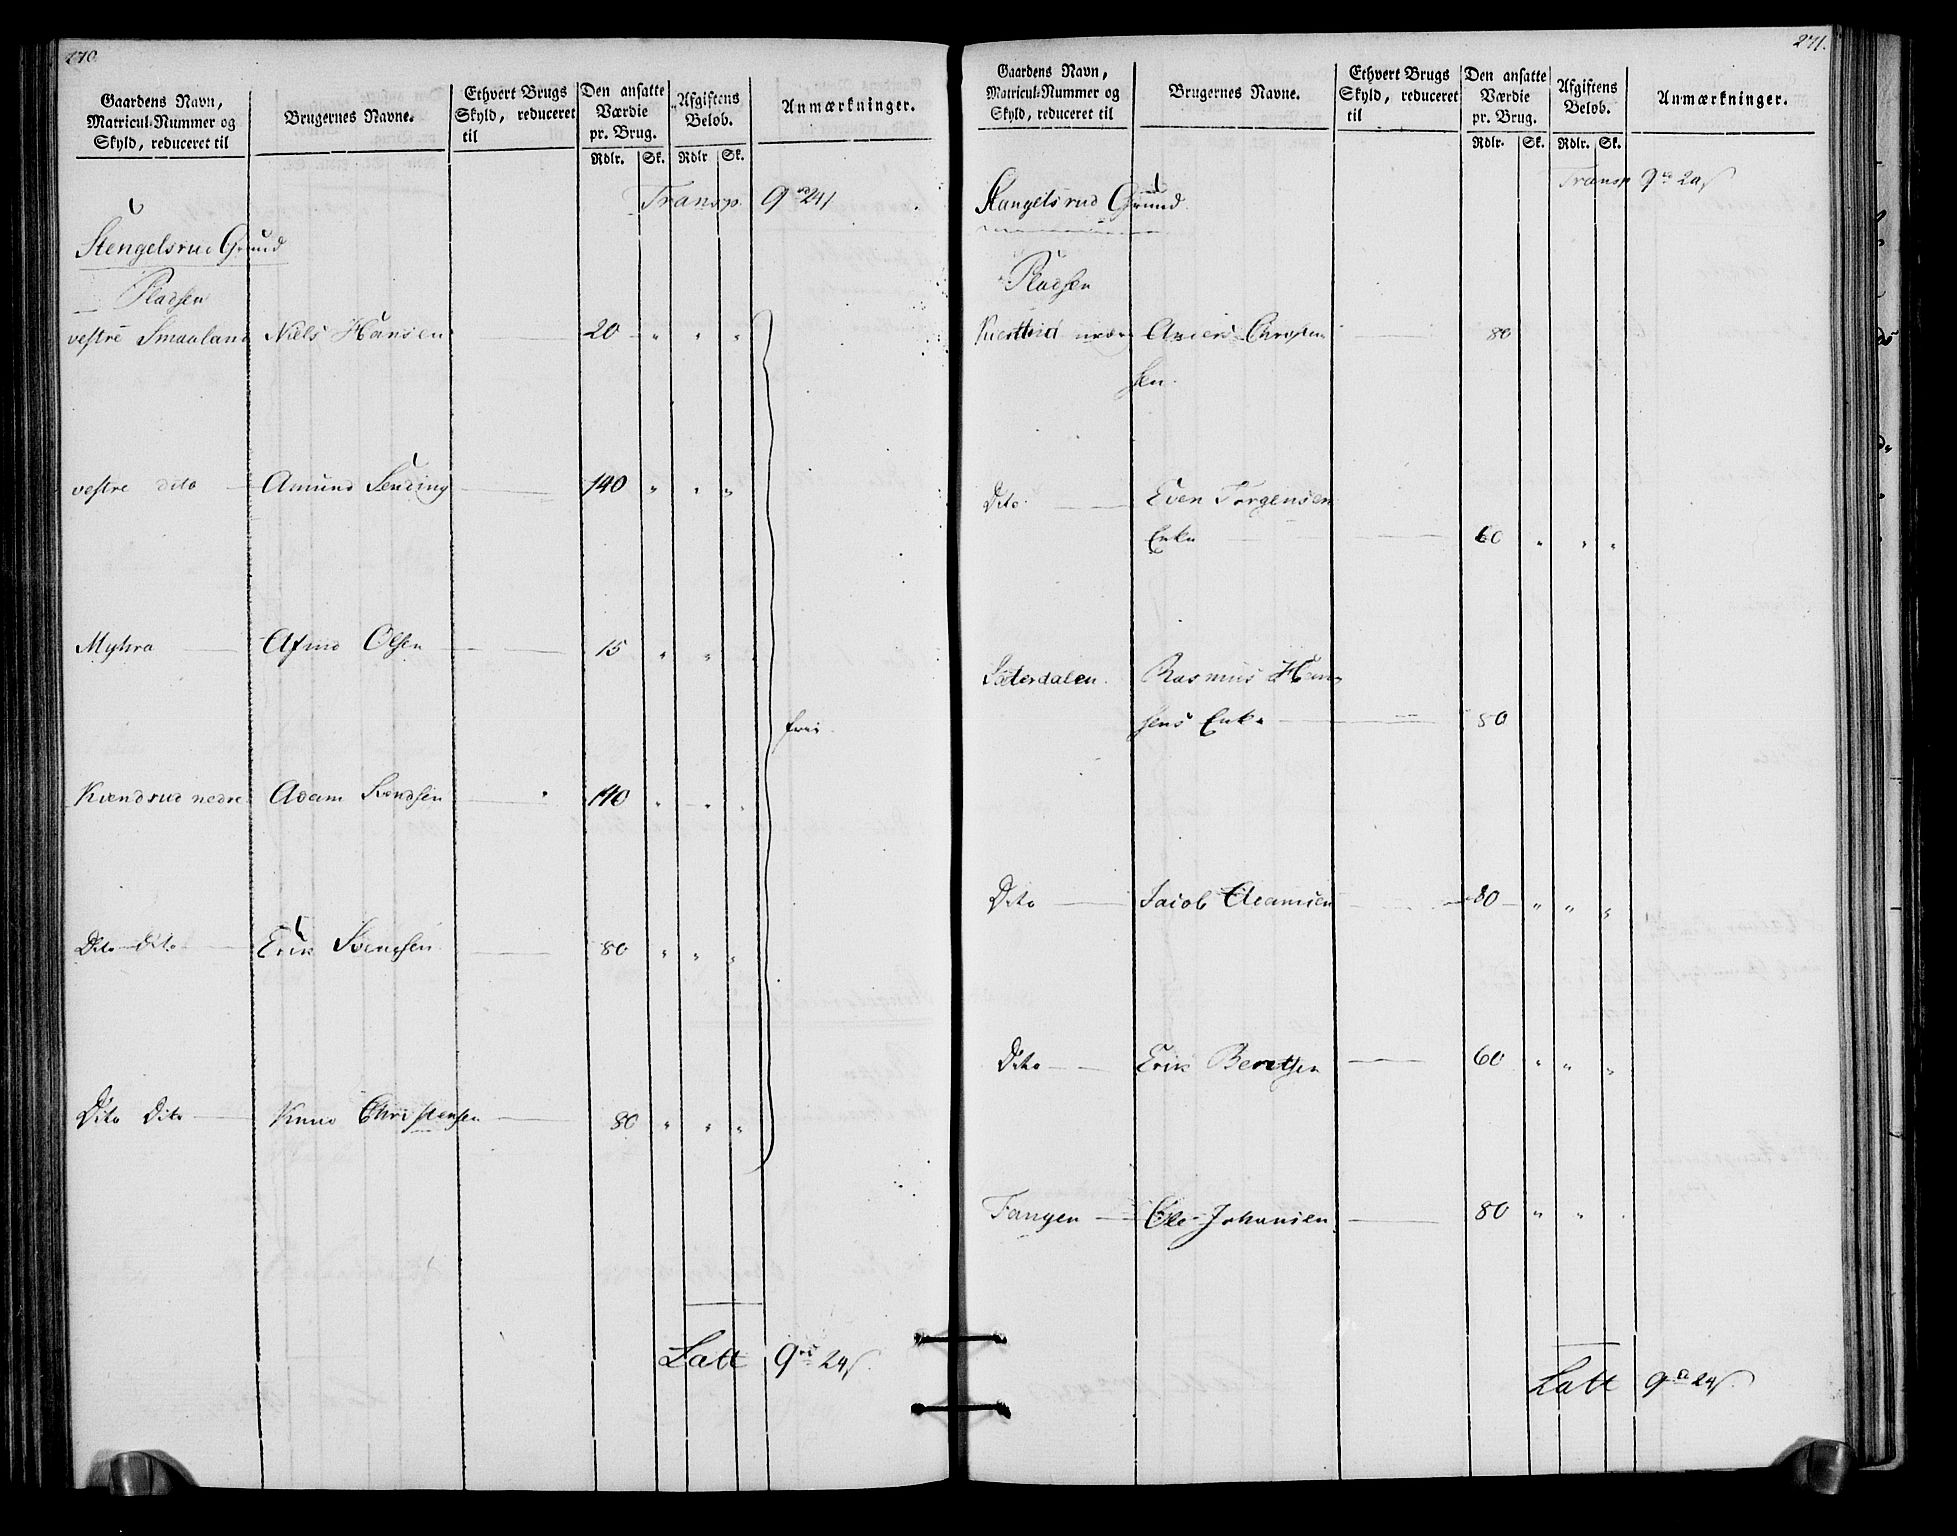 270
Gaardens Navn, Matricul-Nummer og Skyld, reduceret til
Brugernes Navne.
Ethvert Brugs Skyld, reduceret til
Den ansatte Værdie pr. Brug.
Afgiftens Beløb.
Anmærkninger.
Rdlr. Sk. Rdlr Sk.
Transp. 9 24
Stengelsrud Grund
Pladsen
vestre Smaaland Niels Hansen 20 " " "
vestre dito Amund Sending 140 " " "
Myhra Olsen 15 " "
frie.
Kvendsrud nedre Adam Svendsen 140 " " "
Dito dito Erik Svendsen 80 " " "
Dito Dito Knud Christensen 80 " " "
Latt 9 24
271.
Gaardens Navn, Matricul-Nummer og Skyld, reduceret til
Brugernes Navne.
Ethvert Brugs Skyld, reduceret til
Den ansatte Værdie pr. Brug.
Afgiftens Beløb.
Anmærkninger.
Rdlr. Sk. Rdlr. Sk.
Transp 9
Stangelsrud Grund
Pladsen
Anders Christen 80
sen.
Dito Even Torgensen
Enke 60 " " "
Sæterdalen Rasmus Han
sens Enke 80
Dito Jacob Adamsen 80 " " "
Dito Erik Berntsen 60 " " "
Tangen Ole Johansen 80 " "
Latt 9 24